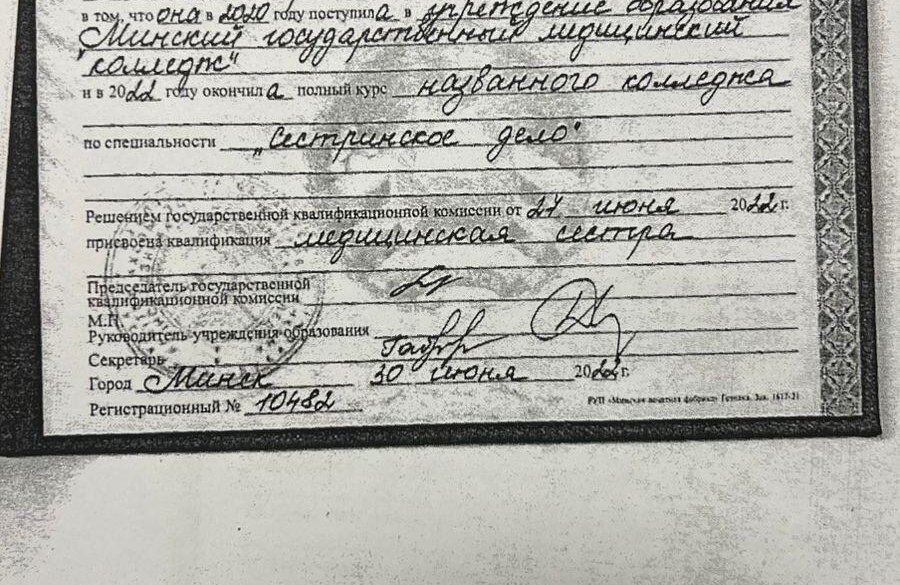 в том, что она в 2020 году поступила в учреждение образования
"Минский государственный медицинский
колледж"
и в 2022 году окончила полный курс названного колледжа
по специальности „Сестринское дело"
Решением государственной квалификационной комиссии от 27 июня 2022 г.
присвоена квалификация медицинская сестра
Председатель государственной
квалификационной комиссии
М.П.
Руководитель учреждения образования
Секретарь
Город Минск 30 июня 2022 г.
Регистрационный № 10482
РУП «Минская печатная фабрика» Гознака. Зак. 1617-21